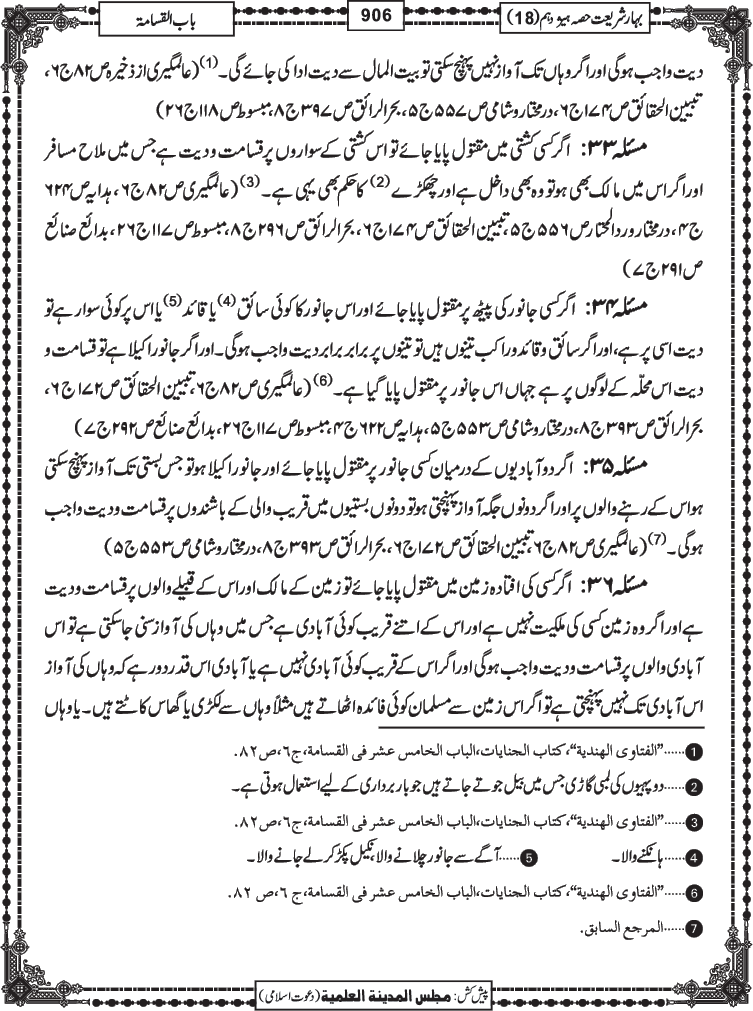 بہارِ شریعت حصہ ہیژدہم (18)
906
باب القسامۃ
دیت واجب ہوگی اور اگر وہاں تک آواز نہیں پہنچ سکتی تو بیت المال سے دیت ادا کی جائے گی۔(1) (عالمگیری از ذخیرہ ص۸۲ج۶،
تبیین الحقائق ص۱۷۴ ج۶، درمختار وشامی ص۵۵۷ ج۵، بحرالرائق ص۳۹۷ ج۸، مبسوط ص۱۱۸ج۲۶)
مسئلہ ۳۳: اگر کسی کشتی میں مقتول پایا جائے تو اس کشتی کے سواروں پر قسامت ودیت ہے جس میں ملاح مسافر
اور اگر اس میں مالک بھی ہو تو وہ بھی داخل ہے اور چھکڑے(2) کا حکم بھی یہی ہے۔(3) (عالمگیری ص۸۲ ج۶، ہدایہ ص۶۲۴
ج۴، درمختار وردالمحتار ص۵۵۶ ج۵، تبیین الحقائق ص۱۷۴ ج۶، بحرالرائق ص۲۹۶ ج۸، مبسوط ص۱۱۷ ج۲۶، بدائع صنائع
ص۲۹۱ ج۷)
مسئلہ ۳۴: اگر کسی جانور کی پیٹھ پر مقتول پایا جائے اور اس جانور کا کوئی سائق(4) یا قائد(5) یا اس پر کوئی سوار ہے تو
دیت اسی پر ہے، اور اگر سائق وقائد وراکب تینوں ہیں تو تینوں پر برابر برابر دیت واجب ہوگی۔ اور اگر جانور اکیلا ہے تو قسامت و
دیت اس محلّہ کے لوگوں پر ہے جہاں اس جانور پر مقتول پایا گیا ہے۔(6) (عالمگیری ص۸۲ ج۶، تبیین الحقائق ص۱۷۲ ج۶،
بحرالرائق ص۳۹۳ ج۸، درمختار وشامی ص۵۵۳ ج۵، ہدایہ ص۶۲۲ ج۴، مبسوط ص۱۱۷ ج۲۶، بدائع صنائع ص۲۹۲ ج۷)
مسئلہ ۳۵: اگر دو آبادیوں کے درمیان کسی جانور پر مقتول پایا جائے اور جانور اکیلا ہو تو جس بستی تک آواز پہنچ سکتی
ہو اس کے رہنے والوں پر اور اگر دونوں جگہ آواز پہنچتی ہو تو دونوں بستیوں میں قریب والی کے باشندوں پر قسامت ودیت واجب
ہوگی۔(7) (عالمگیری ص۸۲ ج۶، تبیین الحقائق ص۱۷۲ ج۶، بحرالرائق ص۳۹۳ ج۸، درمختار وشامی ص۵۵۳ ج۵)
مسئلہ ۳۶: اگر کسی کی افتادہ زمین میں مقتول پایا جائے تو زمین کے مالک اور اس کے قبیلے والوں پر قسامت ودیت
ہے اور اگر وہ زمین کسی کی ملکیت نہیں ہے اور اس کے اتنے قریب کوئی آبادی ہے جس میں وہاں کی آواز سنی جاسکتی ہے تو اس
آبادی والوں پر قسامت ودیت واجب ہوگی اور اگر اس کے قریب کوئی آبادی نہیں ہے یا آبادی اس قدر دور ہے کہ وہاں کی آواز
اس آبادی تک نہیں پہنچتی ہے تو اگر اس زمین سے مسلمان کوئی فائدہ اٹھاتے ہیں مثلاً وہاں سے لکڑی یا گھاس کاٹتے ہیں۔ یا وہاں
1......"الفتاوی الھندیة"، کتاب الجنایات،الباب الخامس عشر فی القسامة،ج٦،ص٨٢.
2......دو پہیوں کی لمبی گاڑی جس میں بیل جوتے جاتے ہیں جو باربرداری کے لیے استعمال ہوتی ہے۔
3......"الفتاوی الھندیة"، کتاب الجنایات،الباب الخامس عشر فی القسامة،ج٦،ص٨٢.
4......ہانکنے والا۔ 5......آگے سے جانور چلانے والا، نکیل پکڑ کر لے جانے والا۔
6......"الفتاوی الھندیة"، کتاب الجنایات،الباب الخامس عشر فی القسامة، ج ٦،ص ٨٢.
7......المرجع السابق.
پیش کش: مجلس المدینة العلمیة (دعوت اسلامی)